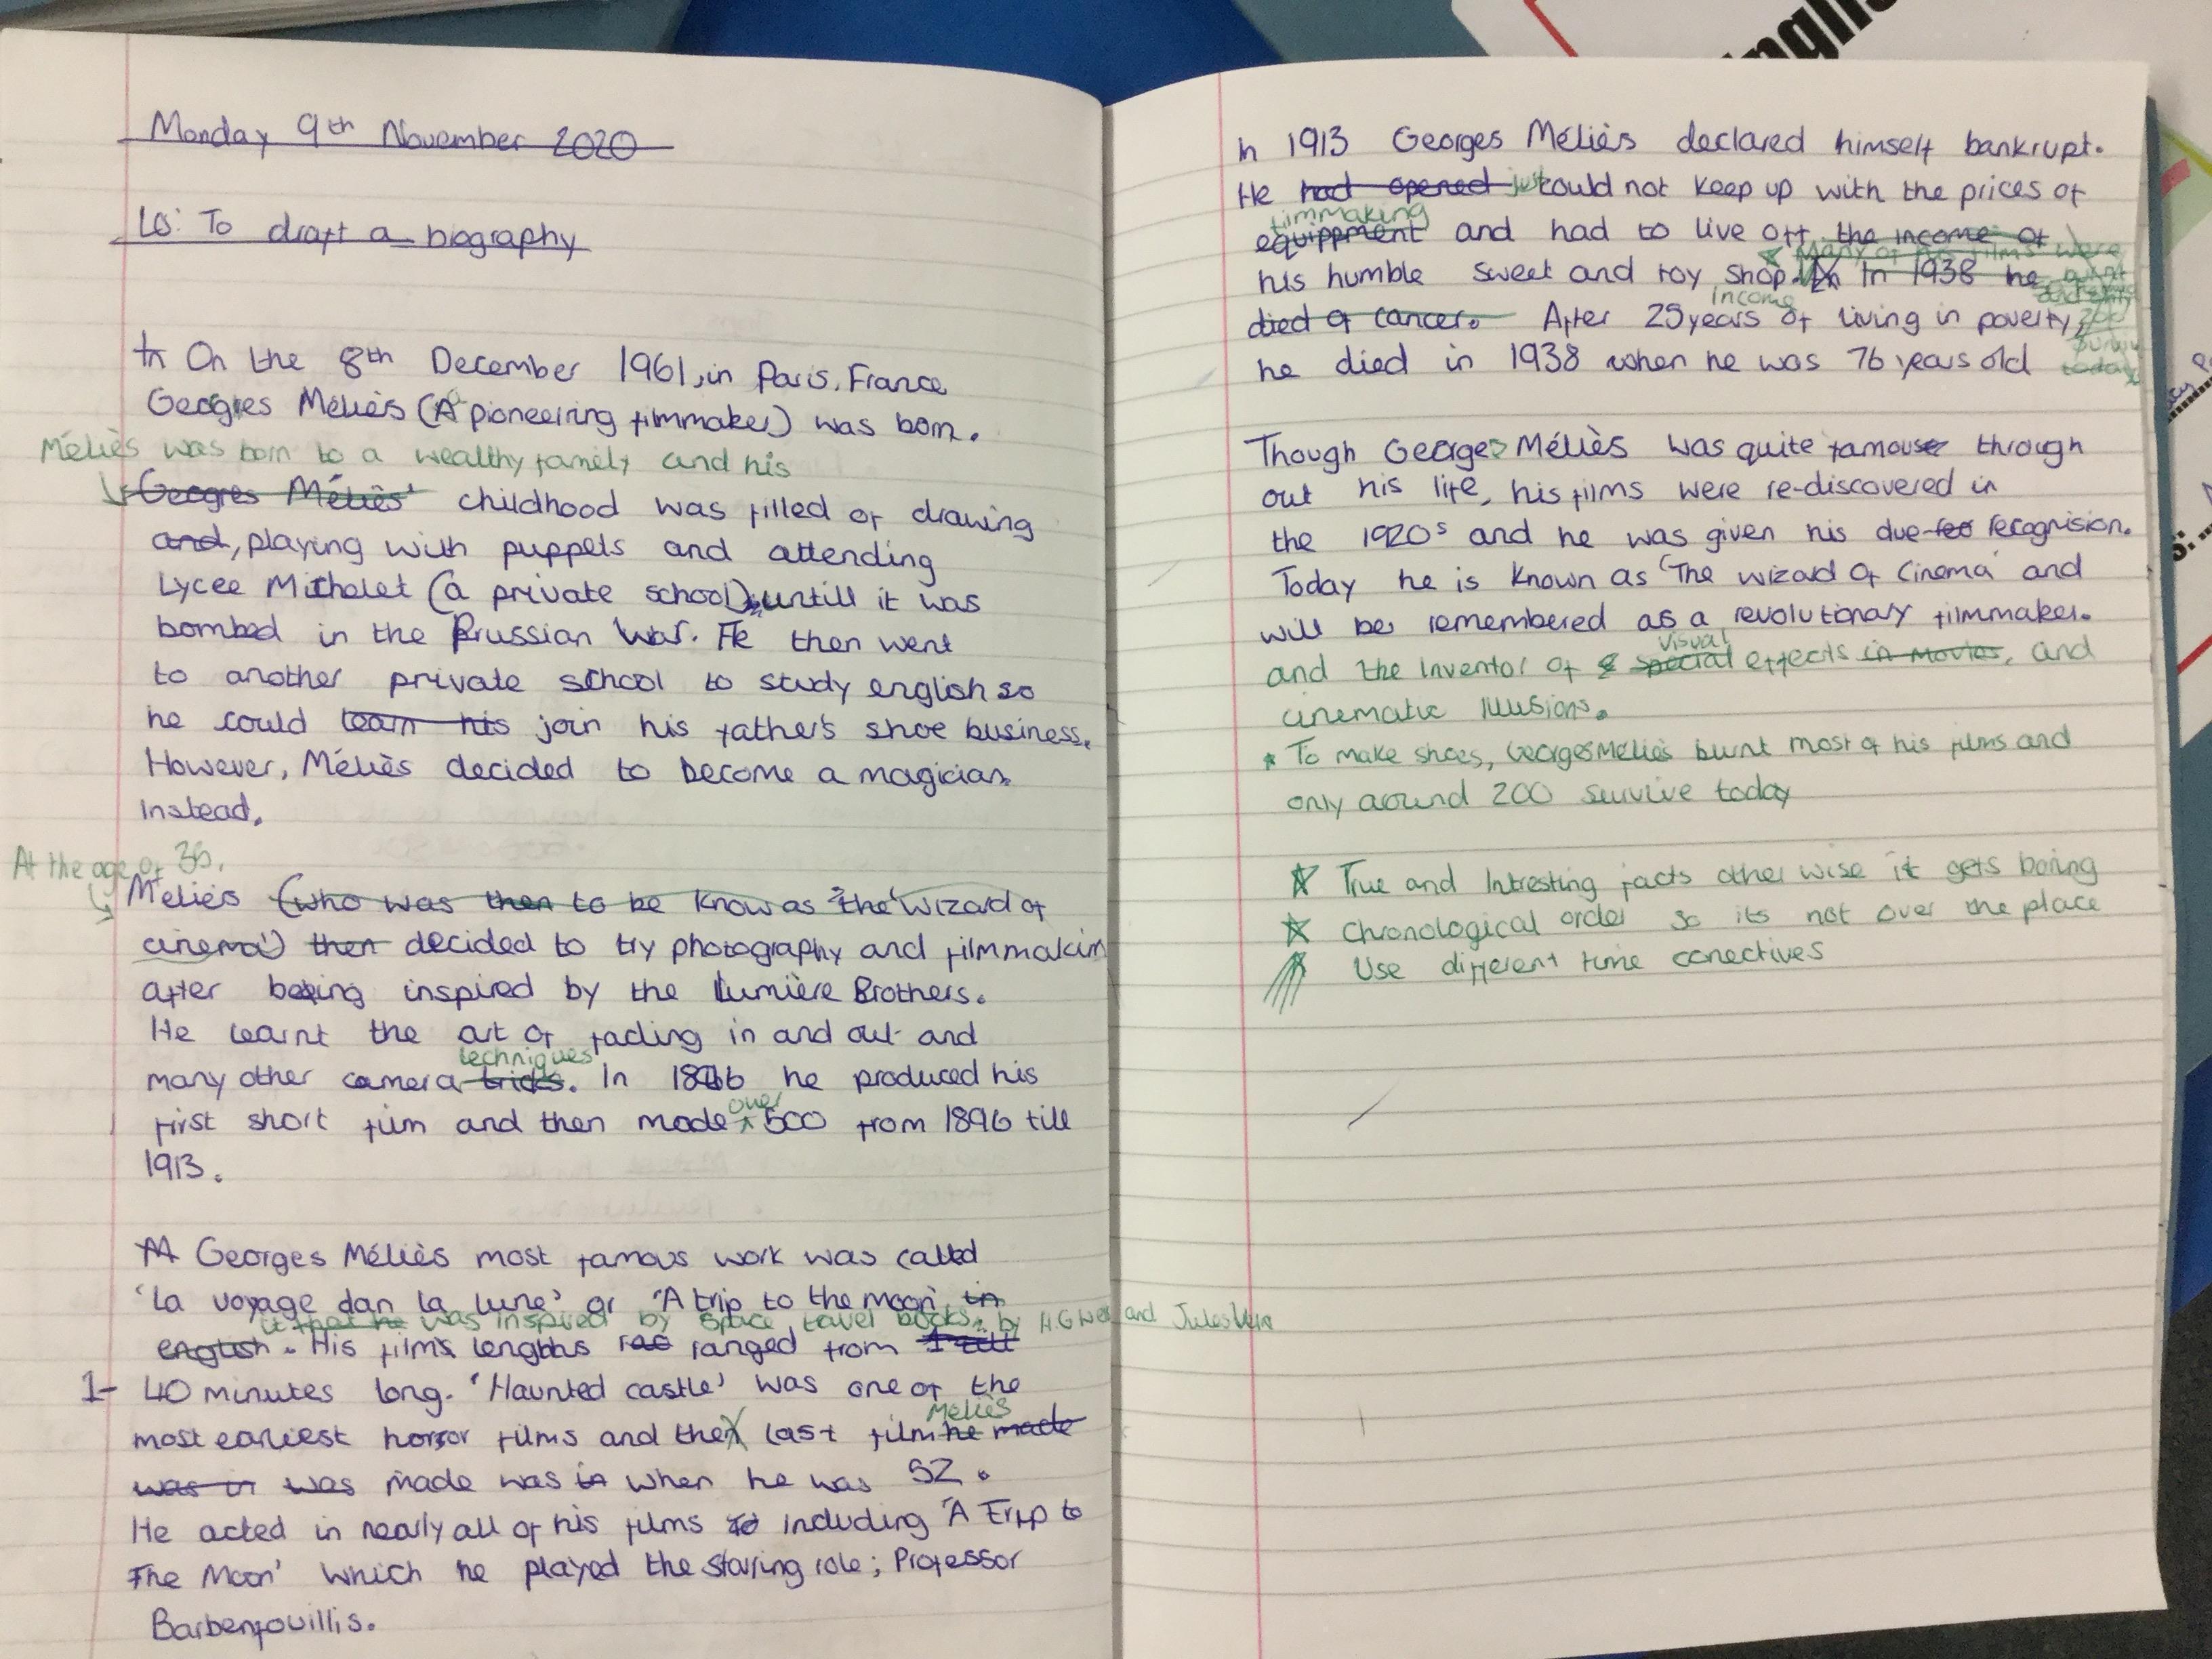 Monday 9th November 2020
LO: To draft a biography
In On the 8th December 1961, in Paris, France
Georges Méliès (A pioneering filmmaker) was born.
Méliès was born to a wealthy family and his
Geogres Méliès' childhood was filled of drawing
and, playing with puppets and attending
Lycee Michelet (a private school) untill it was
bombed in the Prussian War. He then went
to another private school to study english so
he could learn his join his father's shoe business.
However, Méliès decided to become a magician
instead.
At the age of 36,
Méliès (who was then to be know as 'the wizard of
cinema') then decided to try photography and filmmakin
after being inspired by the Lumière Brothers.
He learnt the art of fading in and out and
techniques
many other camera tricks. In 1896 he produced his
over
first short film and then made 500 from 1896 till
1913.
Georges Méliès most famous work was called
'La voyage dan la lune' or 'A trip to the moon' in
it that he was inspired by space travel books, by H.G Wells and Jules Vern
english. His films lengths ranged from
1- 40 minutes long. 'Haunted castle' was one of the
Méliès
most earliest horror films and the last film he made
was in was made was in when he was 52.
He acted in nearly all of his films including 'A Trip to
The Moon' which he played the staring role; Professor
Barbenfouillis.
In 1913 Georges Méliès declared himself bankrupt.
He had opened just could not keep up with the prices of
filmmaking
equippment and had to live off the income of
Many of his films were
his humble sweet and toy shop. In 1938 he burnt
income
died of cancer. After 25 years of living in poverty, 200
he died in 1938 when he was 76 years old today
Though Georges Méliès was quite famous through
out his life, his films were re-discovered in
the 1920s and he was given his due recognision.
Today he is known as 'The wizard of cinema' and
will be remembered as a revolutionary filmmaker.
visual
and the inventor of special effects in movies, and
cinematic illusions.
* To make shoes, Georges Méliès burnt most of his films and
only around 200 survive today
☆ True and Intresting facts other wise it gets boring
☆ Chronological order so its not over the place
Use different time conectives
nglis